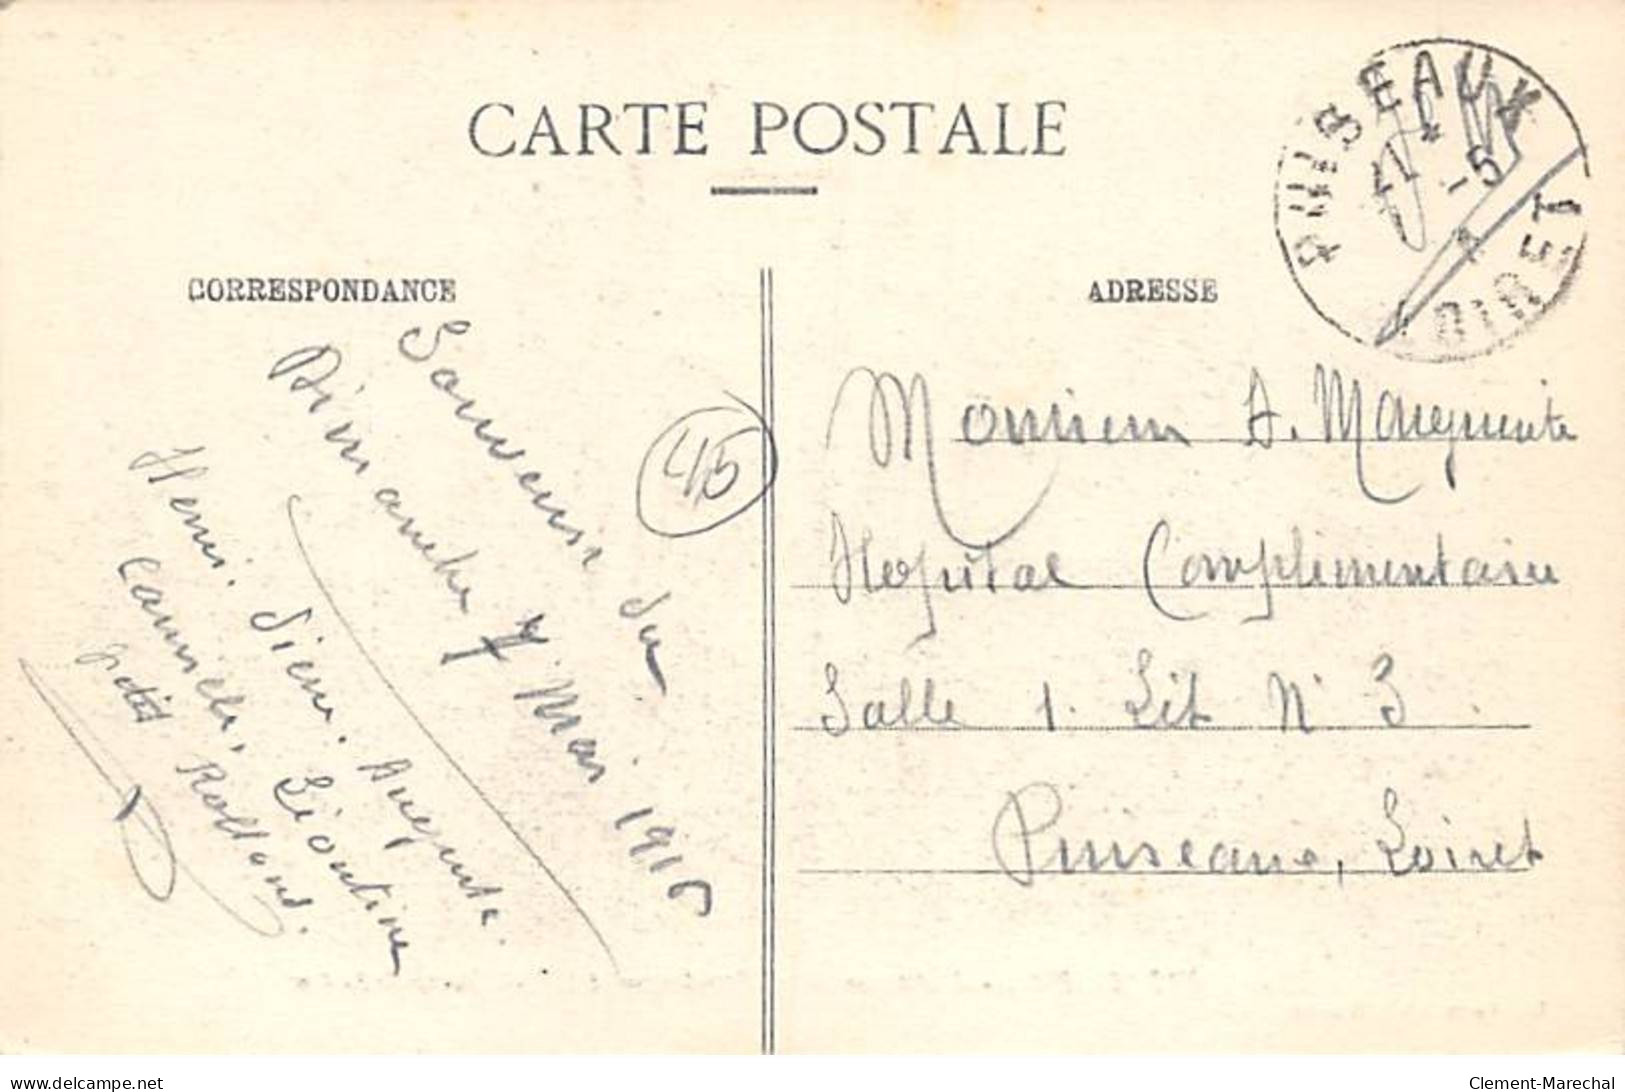 CARTE POSTALE
PUISEAUX
11 * -5
LOIRET
CORRESPONDANCE
ADRESSE
Souvenir du
Dimanche 7 Mai 1916
Henri. Auguste.
Camille, Léontine
petit Rolland.
45
Monsieur A. Marguerite
Hopital Complémentaire
Salle 1. Lit N° 3.
Puiseaux, Loiret
delcampe.net
Clement-Marechal